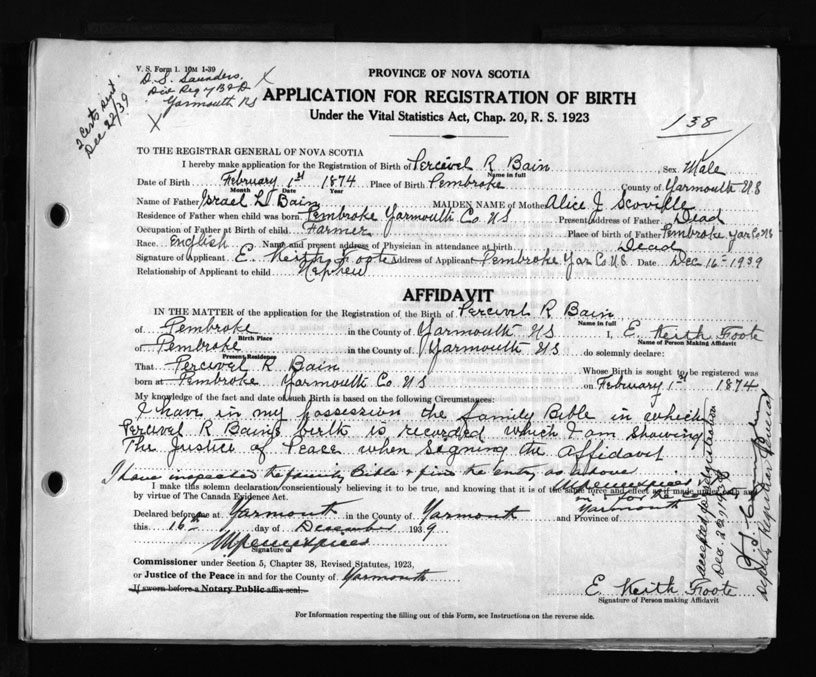 V. S. Form 1. 10M 1-39
D. S. Saunders,
Div Reg of B & D
Yarmouth NS
X
X
2 Certs sent.
Dec 22/39
PROVINCE OF NOVA SCOTIA
APPLICATION FOR REGISTRATION OF BIRTH
Under the Vital Statistics Act, Chap. 20, R. S. 1923
138
TO THE REGISTRAR GENERAL OF NOVA SCOTIA
I hereby make application for the Registration of Birth of Percivel R Bain Sex Male
Name in full
Date of Birth February 1st 1874 Place of Birth Pembroke County of Yarmouth N.S
Month Date Year
Name of Father Israel L. Bain MAIDEN NAME of Mother Alice J Scoville
Residence of Father when child was born Pembroke Yarmouth Co NS Present Address of Father Dead
Occupation of Father at Birth of child Farmer Place of birth of Father Pembroke Yar Co NS
Race English Name and present address of Physician in attendance at birth Dead
Signature of Applicant E. Keith Foote Address of Applicant Pembroke Yar Co N.S. Date Dec 16- 1939
Relationship of Applicant to child Nephew
AFFIDAVIT
IN THE MATTER of the application for the Registration of the Birth of Percivel R Bain
Name in full
of Pembroke in the County of Yarmouth NS I, E Keith Foote
Birth Place Name of Person Making Affidavit
of Pembroke in the County of Yarmouth NS do solemnly declare:
Present Residence
That Percivel R Bain Whose Birth is sought to be registered was
born at Pembroke Yarmouth Co NS on February 1st 1874
My knowledge of the fact and date of such Birth is based on the following Circumstances:
I have in my possession the family Bible in which
Percivel R Bain's birth is recorded which I am showing
The Justice of Peace when signing the Affidavit
I have inspected the family Bible & find the entry as above
I make this solemn declaration conscientiously believing it to be true, and knowing that it is of the same force and effect as if made under oath and
by virtue of The Canada Evidence Act.
Declared before me at Yarmouth in the County of Yarmouth and Province of
Yarmouth
this 16th day of December 1939
Signature of
Commissioner under Section 5, Chapter 38, Revised Statutes, 1923,
or Justice of the Peace in and for the County of Yarmouth
If sworn before a Notary Public affix seal.
E Keith Foote
Signature of Person making Affidavit
For Information respecting the filling out of this Form, see Instructions on the reverse side.
accepted for registration
Deputy Registrar General